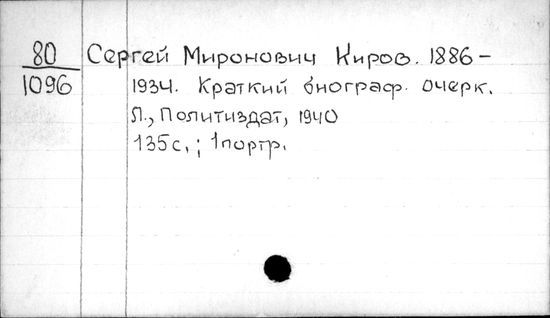 80 Сергей Миронович Киров. 1886 –
1096 1934. Краткий биограф. очерк.
Л., Политиздат, 1940
135 с.; 1 портр.